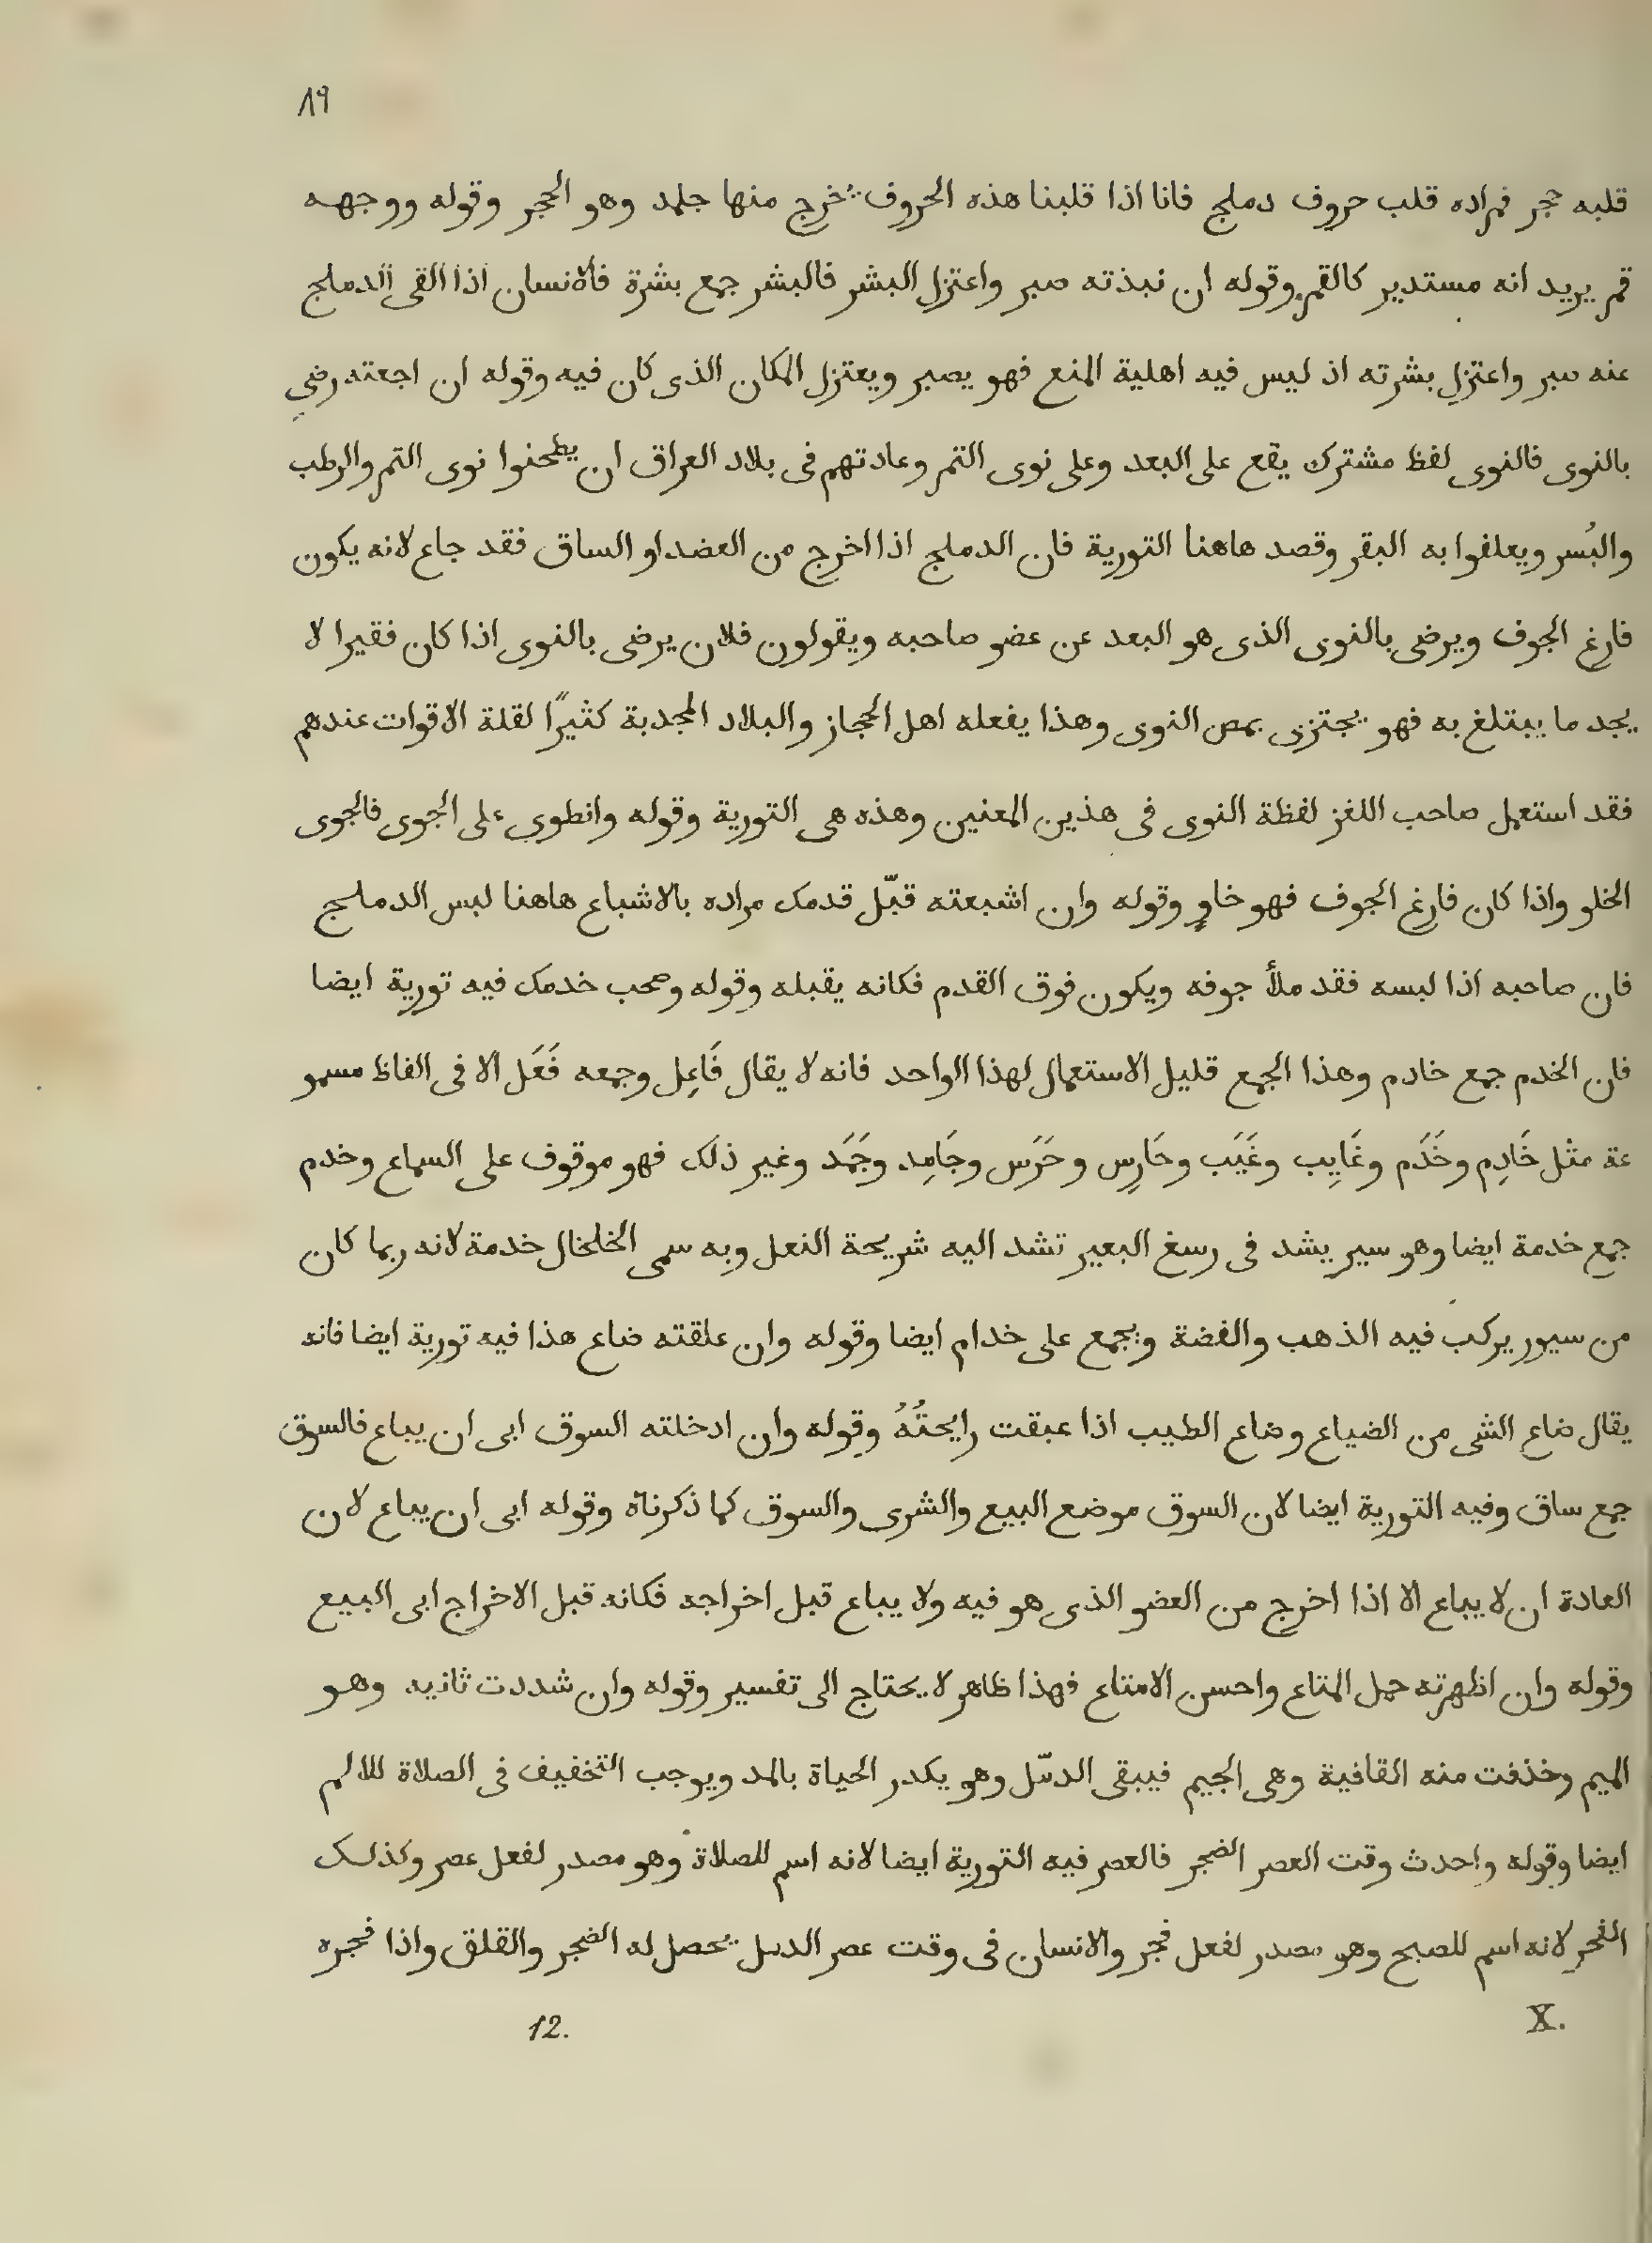 ٨٩
قلبه حجر فمراده قلب حروف دملج فانا اذا قلبنا هذه الحروف يخرج منها جلمد وهو الحجر وقوله ووجهه
قمر يريد انه مستدير كالقمر وقوله ان نبذته صبر واعتزل البشر فالبشر جمع بشرة فالانسان اذا القى الدملج
عنه صبر واعتزل بشرته اذ ليس فيه اهلية المنع فهو يصبر ويعتزل المكان الذى كان فيه وقوله ان اجعته رضي
بالنوى فالنوى لفظ مشترك يقع على البعد وعلى نوى التمر وعادتهم فى بلاد العراق ان يطحنوا نوى التمر والرطب
والبُسر ويعلفوا به البقر وقصد هاهنا التورية فان الدملج اذا اخرج من العضد او الساق فقد جاع لانه يكون
فارغ الجوف ويرضى بالنوى الذى هو البعد عن عضو صاحبه ويقولون فلان يرضى بالنوى اذا كان فقيرا لا
يجد ما يبتلغ به فهو يجتزى بمص النوى وهذا يفعله اهل الحجاز والبلاد المجدبة كثيرًا لقلة الاقوات عندهم
فقد استعمل صاحب اللغز لفظة النوى فى هذين المعنين وهذه هى التورية وقوله وانطوى على الجوى فالجوى
الخلو واذا كان فارغ الجوف فهو خاوٍ وقوله وان اشبعته قبّل قدمك مراده بالاشباع هاهنا لبس الدملج
فان صاحبه اذا لبسه فقد ملأ جوفه ويكون فوق القدم فكانه يقبله وقوله وصحب خدمك فيه تورية ايضا
فان الخدم جمع خادم وهذا الجمع قليل الاستعمال لهذا الواحد فانه لا يقال فَاعِل وجمعه فَعَل الا فى الفاظ مسمو
عة مثل خَادِم وخَدَم وغَايِب وغَيَب وحَارِس وحَرَس وجَامِد وجَمَد وغير ذلك فهو موقوف على السماع وخدم
جمع خدمة ايضا وهو سير يشد فى رسغ البعير تشد اليه شريحة النعل وبِه سمى الخلخال خدمة لانه ربما كان
من سيور يركب فيه الذهب والفضة ويجمع على خدام ايضا وقوله وان علقته ضاع هذا فيه تورية ايضا فانه
يقال ضاع الشى من الضياع وضاع الطيب اذا عبقت رايحتُهُ وقوله وان ادخلته السوق ابى ان يباع فالسوق
جمع ساق وفيه التورية ايضا لان السوق موضع البيع والشرى والسوق كما ذكرناه وقوله ابى ان يباع لان
العادة ان لا يباع الا اذا اخرج من العضو الذى هو فيه ولا يباع قبل اخراجه فكانه قبل الاخراج ابى البيع
وقوله وان اظهرته جمل المتاع واحسن الامتاع فهذا ظاهر لا يحتاج الى تفسير وقوله وان شددت ثانيه وهو
الميم وحذفت منه القافية وهى الجيم فيبقى الدمّل وهو يكدر الحياة بالمد ويوجب التخفيف فى الصلاة للالم
ايضا وقوله واحدث وقت العصر الضجر فالعصر فيه التورية ايضا لانه اسم للصلاة وهو مصدر لفعل عصر وكذلك
الفجر لانه اسم للصبح وهو مصدر لفعل فجر والانسان فى وقت عصر الدمل يحصل له الضجر والقلق واذا فجره
X. 12.